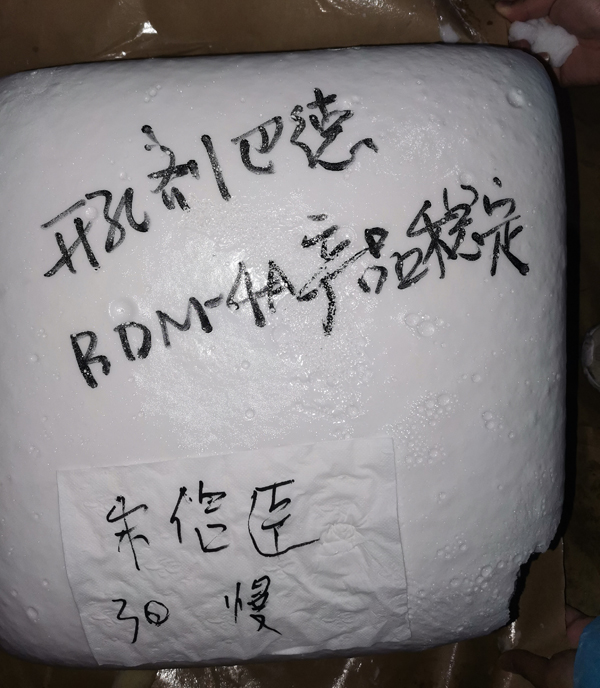 开孔剂巴德
BDM-4A产品稳定
朱信臣
30 慢